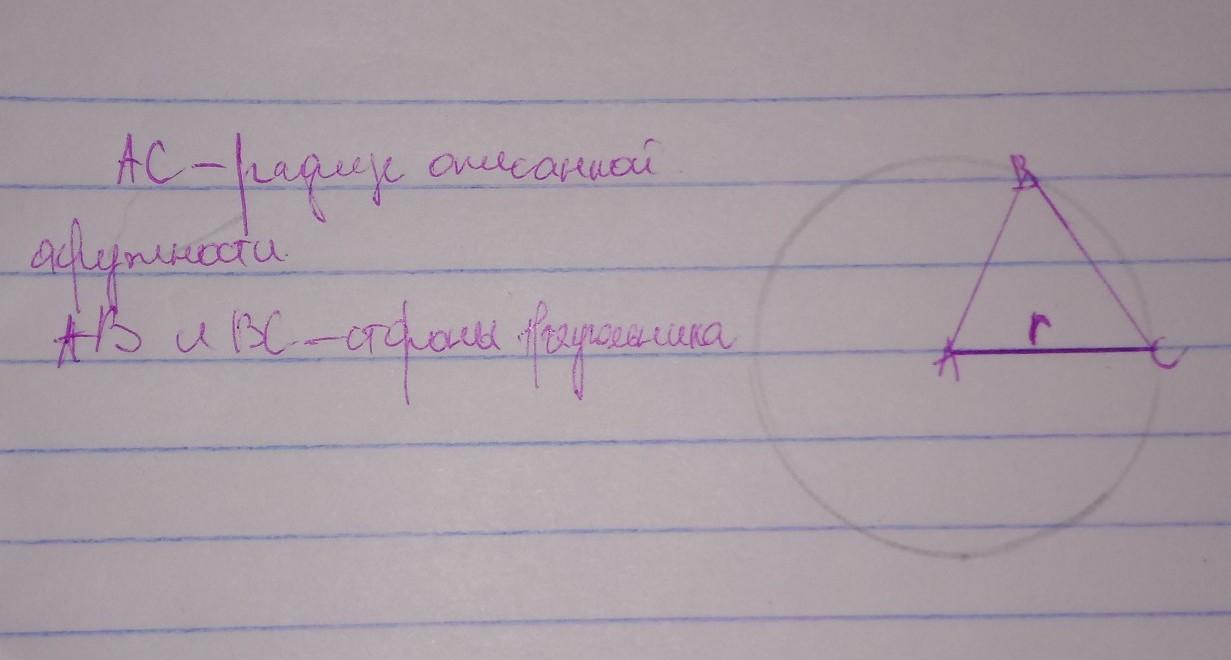 AC – радиус описанной
окружности.
AB и BC – стороны треугольника
B
r
A
C